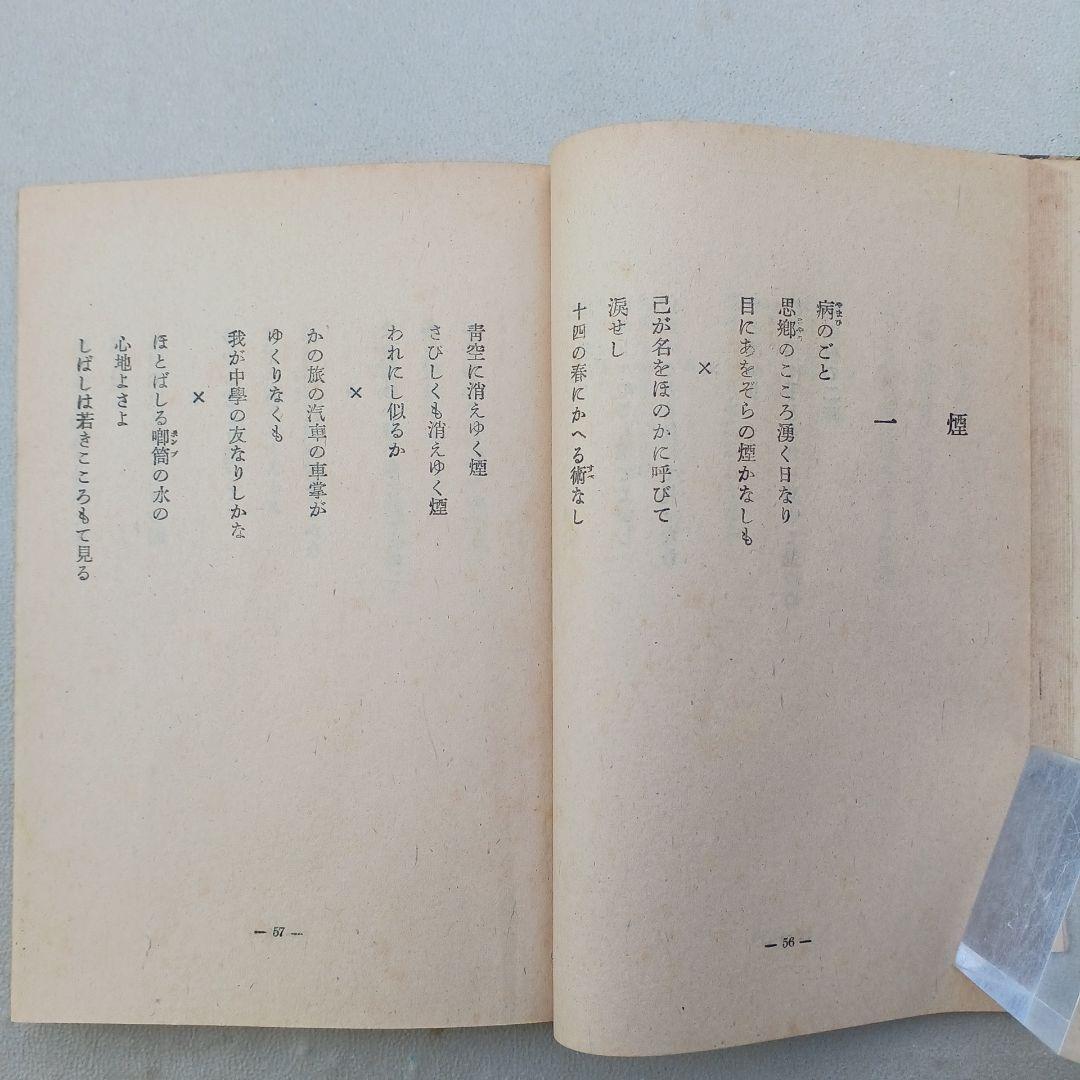 煙
一
病のごと
思鄕のこころ湧く日なり
目にあをぞらの煙かなしも
×
己が名をほのかに呼びて
淚せし
十四の春にかへる術なし
— 56 —
靑空に消えゆく煙
さびしくも消えゆく煙
われにし似るか
×
かの旅の汽車の車掌が
ゆくりなくも
我が中學の友なりしかな
×
ほとばしる喞筒の水の
心地よさよ
しばしは若きこころもて見る
— 57 —